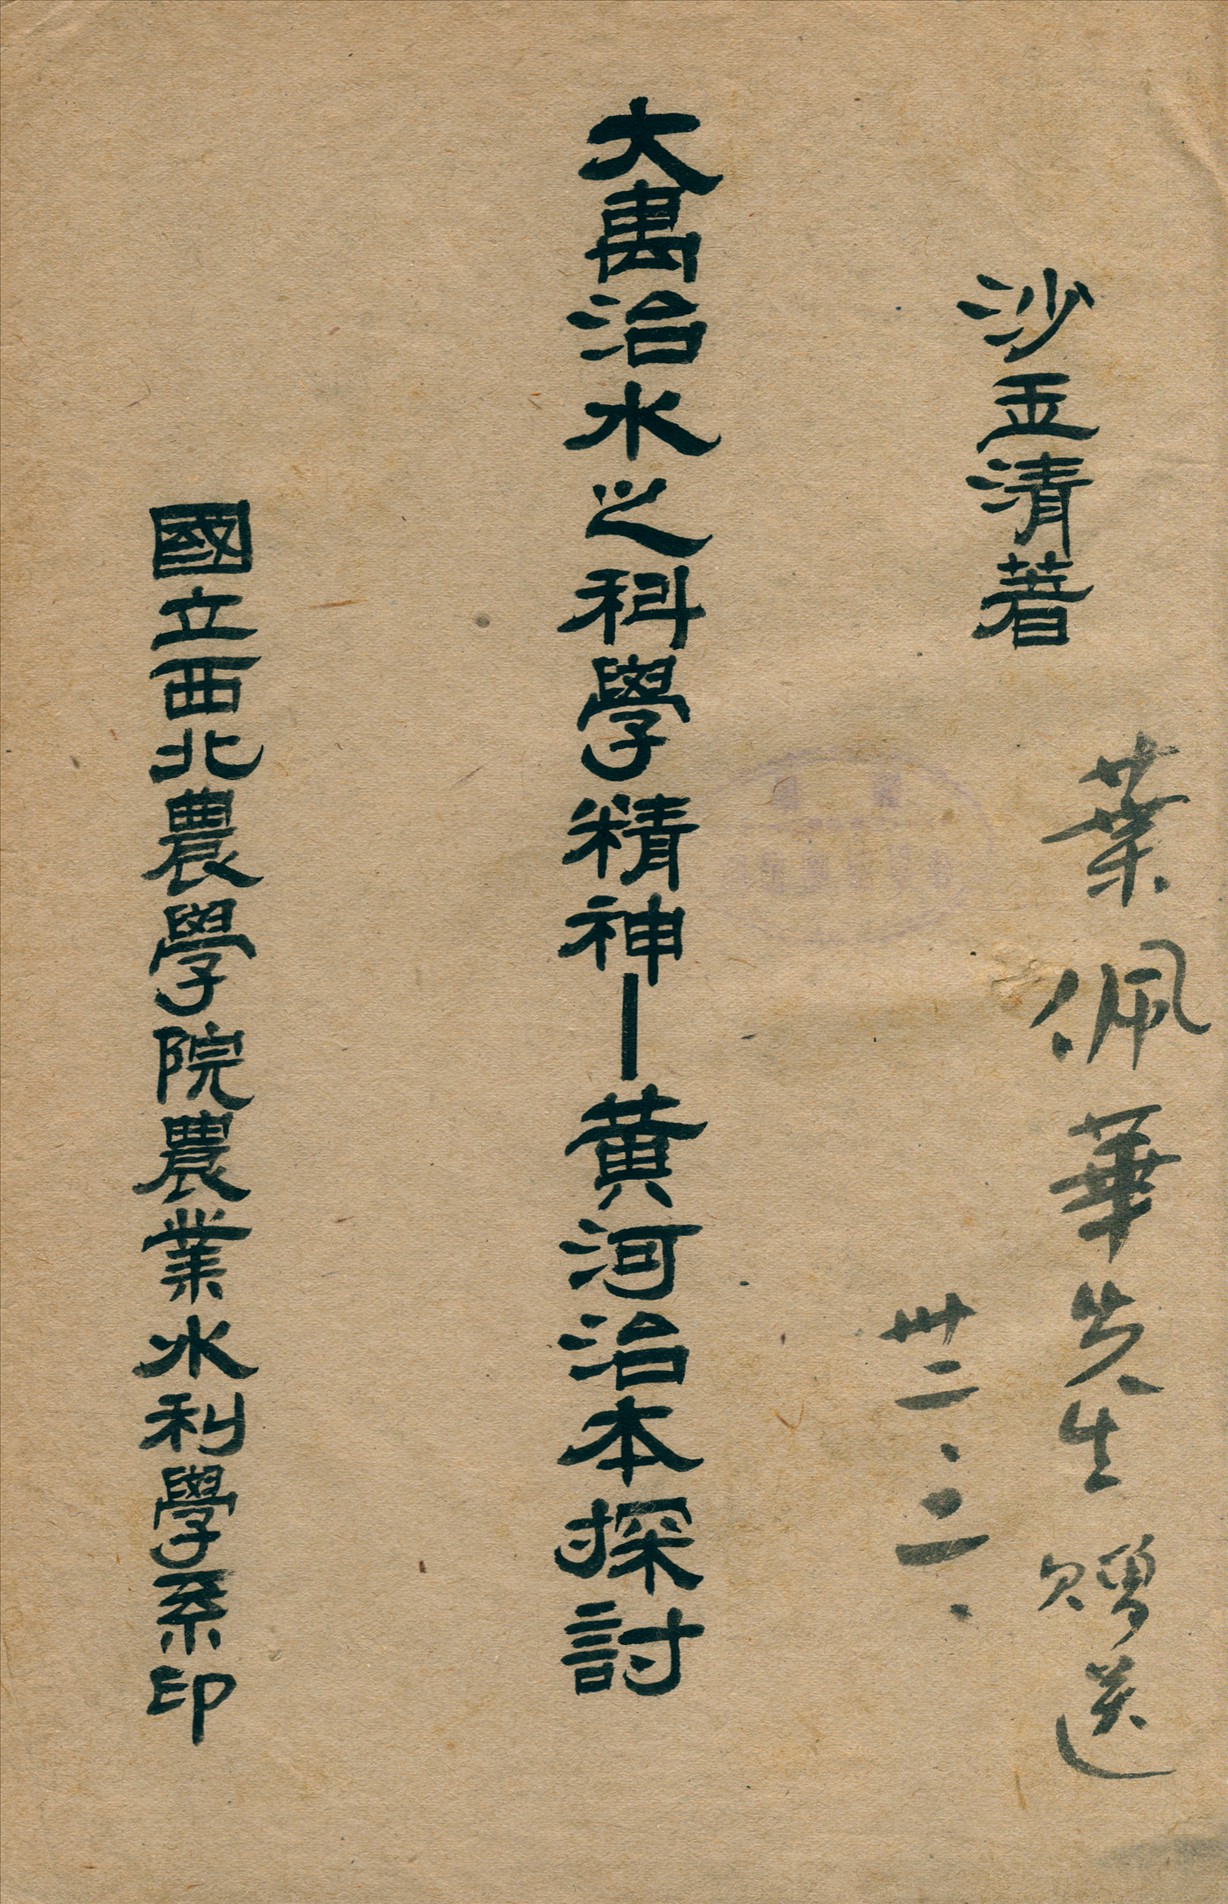 葉佩華先生贈送
沙玉清著
卅二、二、
大禹治水之科學精神—黃河治本探討
國立西北農學院農業水利學系印